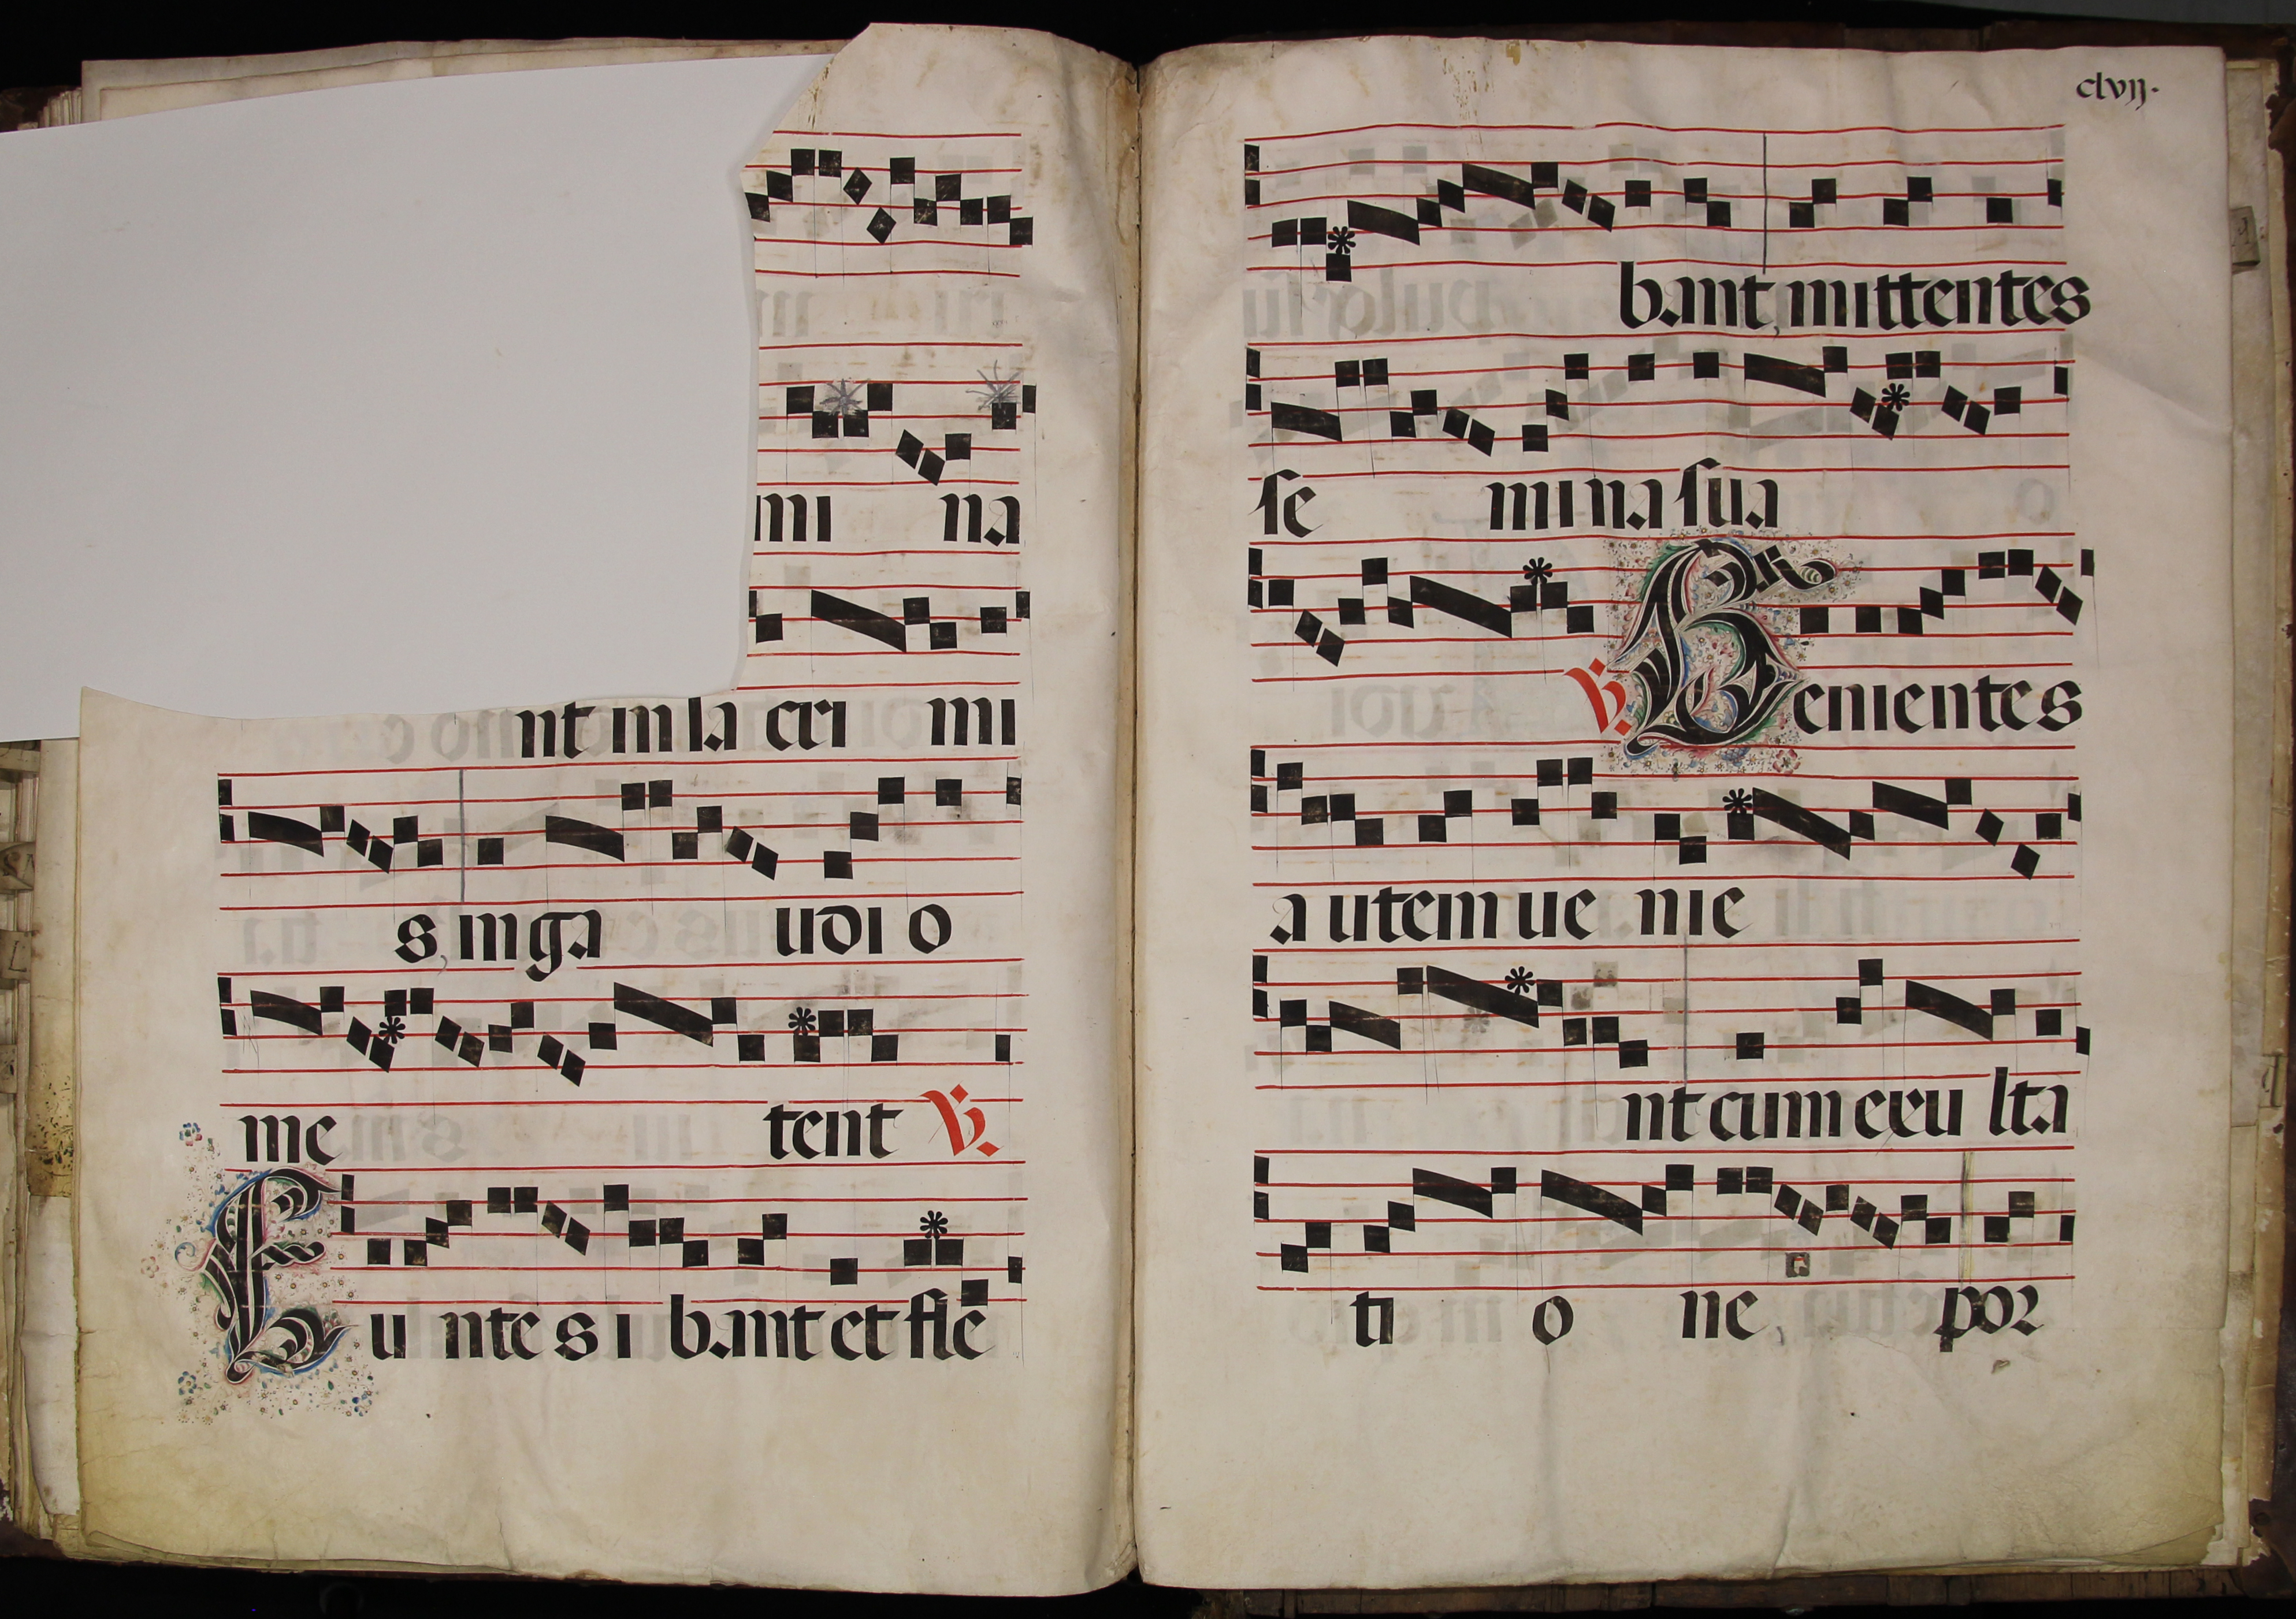 mi na
nt in la cri mi
s, in ga udi o
me tent V.
Eu nte s i bant et fle
clvij.
bant, mittentes
se mi na sua
V. Venientes
a utem ue nie
nt cum exu lta
ti o ne, por